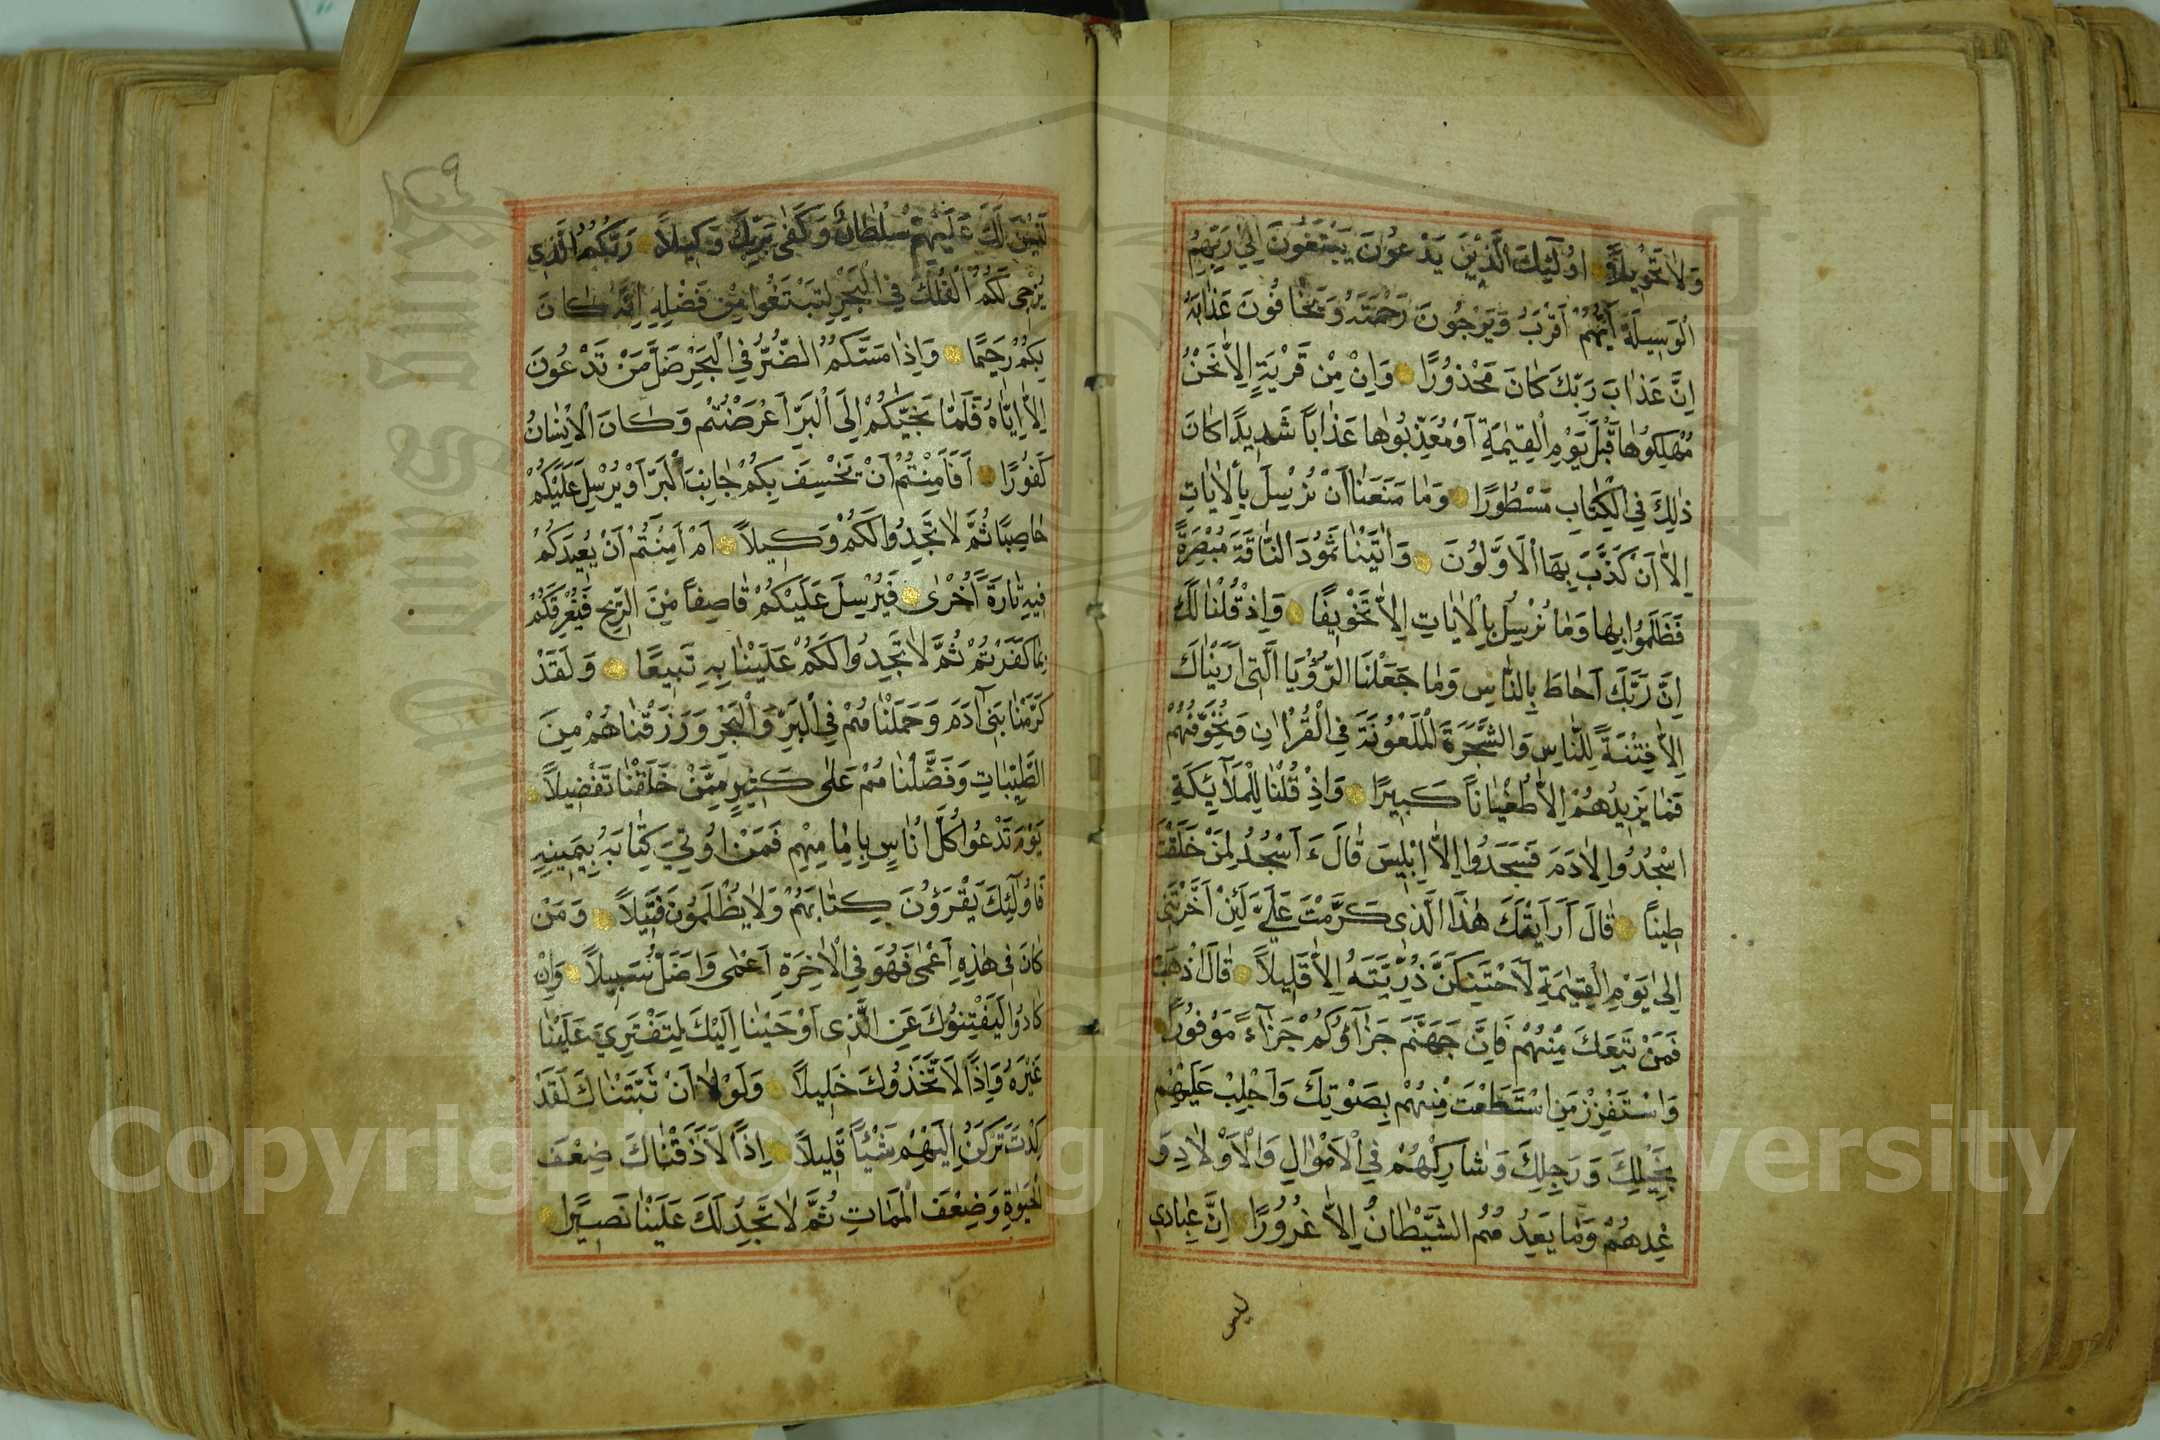 وَلَا تَحْوِيلًا اُولٰٓئِكَ الَّذِينَ يَدْعُونَ يَبْتَغُونَ اِلٰى رَبِّهِمُ
الْوَسِيلَةَ اَيُّهُمْ اَقْرَبُ وَيَرْجُونَ رَحْمَتَهُ وَيَخَافُونَ عَذَابَهُ
اِنَّ عَذَابَ رَبِّكَ كَانَ مَحْذُورًا وَاِنْ مِنْ قَرْيَةٍ اِلَّا نَحْنُ
مُهْلِكُوهَا قَبْلَ يَوْمِ الْقِيٰمَةِ اَوْ مُعَذِّبُوهَا عَذَابًا شَدِيدًا كَانَ
ذٰلِكَ فِي الْكِتَابِ مَسْطُورًا وَمَا مَنَعَنَا اَنْ نُرْسِلَ بِالْاٰيَاتِ
اِلَّا اَنْ كَذَّبَ بِهَا الْاَوَّلُونَ وَاٰتَيْنَا ثَمُودَ النَّاقَةَ مُبْصِرَةً
فَظَلَمُوا بِهَا وَمَا نُرْسِلُ بِالْاٰيَاتِ اِلَّا تَخْوِيفًا وَاِذْ قُلْنَا لَكَ
اِنَّ رَبَّكَ اَحَاطَ بِالنَّاسِ وَمَا جَعَلْنَا الرُّؤْيَا الَّتِي اَرَيْنَاكَ
اِلَّا فِتْنَةً لِلنَّاسِ وَالشَّجَرَةَ الْمَلْعُونَةَ فِي الْقُرْاٰنِ وَنُخَوِّفُهُمْ
فَمَا يَزِيدُهُمْ اِلَّا طُغْيَانًا كَبِيرًا وَاِذْ قُلْنَا لِلْمَلٰٓئِكَةِ
اسْجُدُوا لِاٰدَمَ فَسَجَدُوا اِلَّا اِبْلِيسَ قَالَ ءَاَسْجُدُ لِمَنْ خَلَقْتَ
طِينًا قَالَ اَرَاَيْتَكَ هٰذَا الَّذِي كَرَّمْتَ عَلَيَّ لَئِنْ اَخَّرْتَنِي
اِلٰى يَوْمِ الْقِيٰمَةِ لَاَحْتَنِكَنَّ ذُرِّيَّتَهُ اِلَّا قَلِيلًا قَالَ اذْهَبْ
فَمَنْ تَبِعَكَ مِنْهُمْ فَاِنَّ جَهَنَّمَ جَزَآؤُكُمْ جَزَآءً مَوْفُورًا
وَاسْتَفْزِزْ مَنِ اسْتَطَعْتَ مِنْهُمْ بِصَوْتِكَ وَاَجْلِبْ عَلَيْهِمْ
بِخَيْلِكَ وَرَجِلِكَ وَشَارِكْهُمْ فِي الْاَمْوَالِ وَالْاَوْلَادِ وَ
عِدْهُمْ وَمَا يَعِدُهُمُ الشَّيْطَانُ اِلَّا غُرُورًا اِنَّ عِبَادِي
ليس
لَيْسَ لَكَ عَلَيْهِمْ سُلْطَانٌ وَكَفٰى بِرَبِّكَ وَكِيلًا رَبُّكُمُ الَّذِي
يُزْجِي لَكُمُ الْفُلْكَ فِي الْبَحْرِ لِتَبْتَغُوا مِنْ فَضْلِهِ اِنَّهُ كَانَ
بِكُمْ رَحِيمًا وَاِذَا مَسَّكُمُ الضُّرُّ فِي الْبَحْرِ ضَلَّ مَنْ تَدْعُونَ
اِلَّا اِيَّاهُ فَلَمَّا نَجّٰيكُمْ اِلَى الْبَرِّ اَعْرَضْتُمْ وَكَانَ الْاِنْسَانُ
كَفُورًا اَفَاَمِنْتُمْ اَنْ نَخْسِفَ بِكُمْ جَانِبَ الْبَرِّ اَوْ يُرْسِلَ عَلَيْكُمْ
حَاصِبًا ثُمَّ لَا تَجِدُوا لَكُمْ وَكِيلًا اَمْ اَمِنْتُمْ اَنْ يُعِيدَكُمْ
فِيهِ تَارَةً اُخْرٰى فَيُرْسِلَ عَلَيْكُمْ قَاصِفًا مِنَ الرِّيحِ فَيُغْرِقَكُمْ
بِمَا كَفَرْتُمْ ثُمَّ لَا تَجِدُوا لَكُمْ عَلَيْنَا بِهِ تَبِيعًا وَلَقَدْ
كَرَّمْنَا بَنِي اٰدَمَ وَحَمَلْنَاهُمْ فِي الْبَرِّ وَالْبَحْرِ وَرَزَقْنَاهُمْ مِنَ
الطَّيِّبَاتِ وَفَضَّلْنَاهُمْ عَلٰى كَثِيرٍ مِمَّنْ خَلَقْنَا تَفْضِيلًا
يَوْمَ نَدْعُوا كُلَّ اُنَاسٍ بِاِمَامِهِمْ فَمَنْ اُوتِيَ كِتَابَهُ بِيَمِينِهِ
فَاُولٰٓئِكَ يَقْرَؤُنَ كِتَابَهُمْ وَلَا يُظْلَمُونَ فَتِيلًا وَمَنْ
كَانَ فِي هٰذِهِ اَعْمٰى فَهُوَ فِي الْاٰخِرَةِ اَعْمٰى وَاَضَلُّ سَبِيلًا وَاِنْ
كَادُوا لَيَفْتِنُونَكَ عَنِ الَّذِي اَوْحَيْنَا اِلَيْكَ لِتَفْتَرِيَ عَلَيْنَا
غَيْرَهُ وَاِذًا لَاتَّخَذُوكَ خَلِيلًا وَلَوْلَا اَنْ ثَبَّتْنَاكَ لَقَدْ
كِدْتَ تَرْكَنُ اِلَيْهِمْ شَيْئًا قَلِيلًا اِذًا لَاَذَقْنَاكَ ضِعْفَ
الْحَيٰوةِ وَضِعْفَ الْمَمَاتِ ثُمَّ لَا تَجِدُ لَكَ عَلَيْنَا نَصِيرًا
Copyright © King Saud University